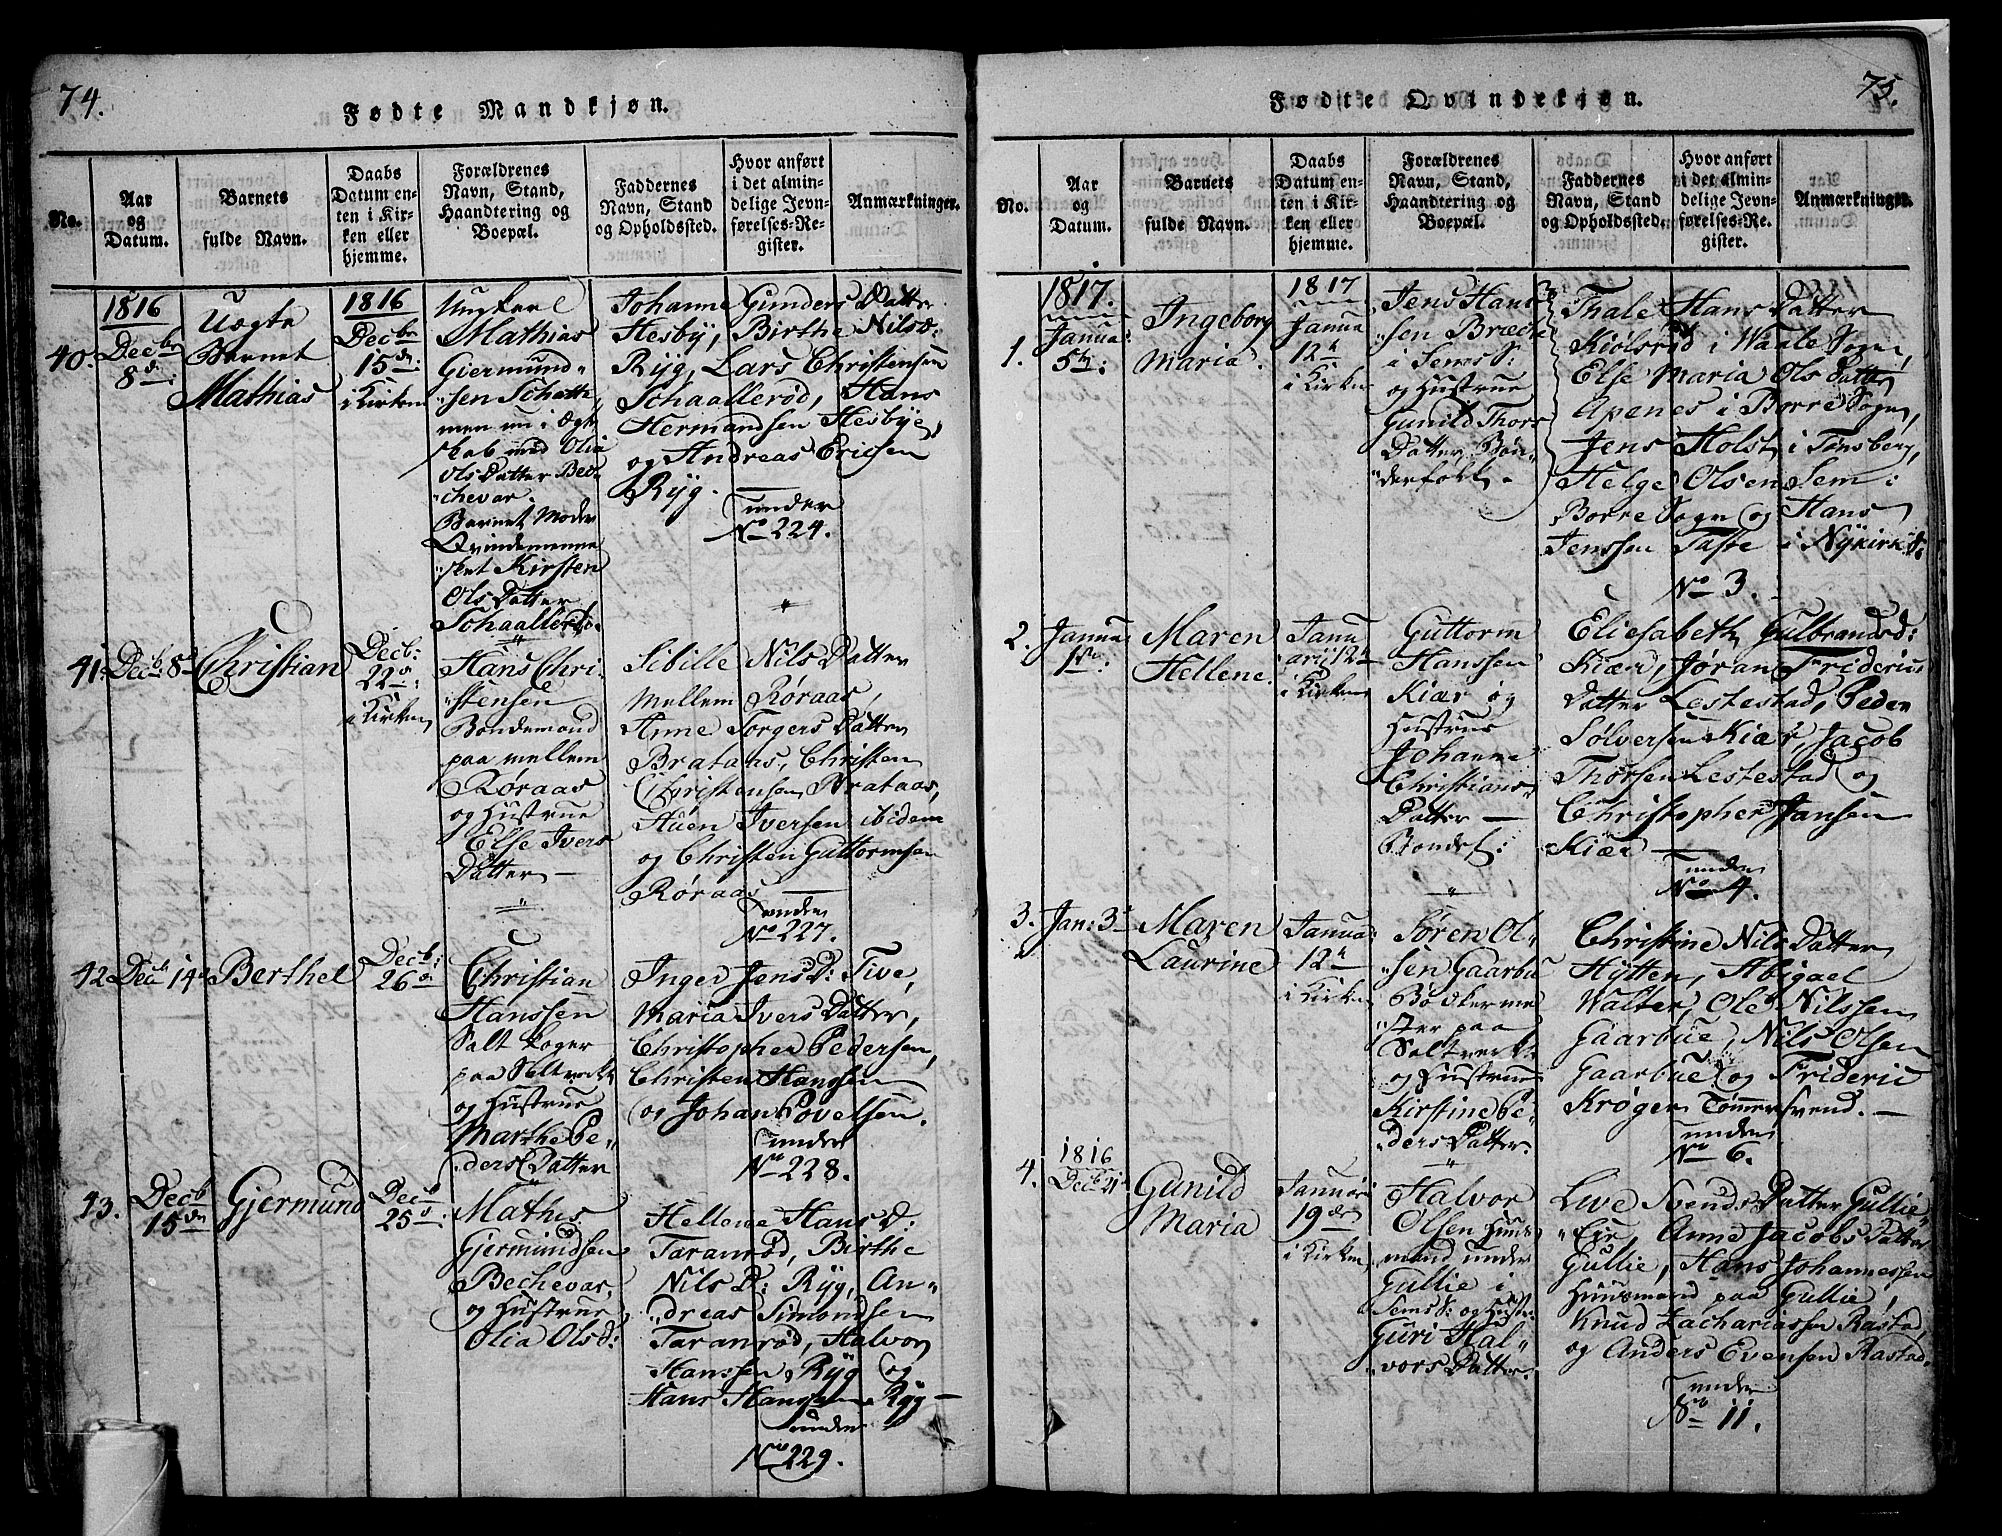 74.
Fødte Mandkjøn.
No.
Aar
og
Datum.
Barnets
fulde Navn.
Daabs
Datum en-
ten i Kir-
ken eller
hjemme.
Forældrenes
Navn, Stand,
Haandtering og
Boepæl.
Faddernes
Navn, Stand
og Opholdssted.
Hvor anført
i det almin-
delige Jevn-
førelses-Re-
gister.
Anmærkninger.
40.
1816
Decbr
8de:
Uægte
Barnet
Mathias
1816
Decbr
15de:
i Kirken
Ungkarl
Mathias
Giermund-
sen
men nu i Ægt-
skab med Olia
Ols Datter Be-
chevar.
Barnets Moder
Qvindemenne-
sket Kirsten
Ols Datter
Schaallerød.
Johanne Gunders Datter
Hesby, Birthe Nilsd:
Ryg, Lars Christensen
Schaallerød, Hans
Hermandsen Hesbye,
og Andreas Ericsen
Ryg. —
under
No 224.
41.
Decb: 8de
Christian
Decb:
22de:
i Kirken
Hans Chri-
stensen
Bondemand
paa mellem
Røraas
og Hustrue
Else Ivers
Datter —
Sibille Nils Datter
Mellem Røraas,
Anne Torgers Datter
Brataas, Christen
Christensen Brataas,
Iversen ibidem
og Christen Guttormsen
Røraas —
under
No 227.
42
Decb 14de
Berthel
Decb:
26de
Christian
Hanssen
Salt koger
paa Saltværket
og Hustrue
Marthe Pe-
ders Datter
Inger Jens D: Five,
Maria Ivers Datter,
Christopher Pedersen,
Christen Hanssen
og Johan Povelsen.
under
No 228.
43.
Decb
15de
Gjermund
Decb
25de:
Mathis
Gjermundsen
Bechevar,
og Hustrue
Olia Olsd:
Hellene Hans D:
Taranrød, Birthe
Nils D: Ryg, An-
dreas Simondsen
Taranrød, Halvor
Hanssen Ryg og
Hans Hanssen Ryg —
under
No 229.
75.
Fødte Qvindekjøn.
No.
Aar
og
Datum.
Barnets
fulde Navn.
Daabs
Datum en-
ten i Kir-
ken eller
hjemme.
Forældrenes
Navn, Stand,
Haandtering og
Boepæl.
Faddernes
Navn, Stand
og Opholdssted.
Hvor anført
i det almin-
delige Jevn-
førelses-Re-
gister.
Anmærkninger.
1.
1817.
Janua:
5te:
Ingeborg
Maria.
1817
Janua
12te
i Kirken
Jens Hans-
sen
i Sems S:
og Hustrue
Gunild Thors
Datter Bøn-
derfolk.
Thale Hans Datter
Kiølsrød i Waale Sogn,
Else Maria Ols Datter
Apenes i Borre Sogn,
Jens Holst i Tønsberg,
Helge Olsen Sem:
Borre Sogn og Hans
Jenssen Taste i Nykirk S:
No 3.
2.
Janua
1ste.
Maren
Hellene.
Janu
arii 12te
i Kirken
Guttorm
Hanssen
Kiær og
Hustrue
Johanne
Christians
Datter —
Bondef:
Eliesabeth Gulbrandsd:
Kiær, Jøran Friderics
Datter Lestestad, Peder
Sølversen Kiær, Jacob
Thorsen Lestestad og
Christopher Jansen
Kiær —
under
No 4.
3.
Jan: 3de
Maren
Laurine
Janua:
12te
i Kirken
Søren Ol-
sen Gaarbu
Bødkerme
ster paa
Saltverk:
og Hustrue
Kirstine Pe-
ders Datter
Christine Nils Datter
Hytten, Abigael
Walter, Ole Nilssen
Gaarbue, Nils Olsen
Gaarbue og Frideric
Krøger Tømmersvend. —
under
No 6.
4.
1816
Decb 21de
Gunild
Maria
Januar
19de
i Kirken
Halvor
Olsen Huus-
mand under
Gullie i
Sems S: og Hustr:
Guri Hal-
vors Datter.
Live Svends Datter Gullie-
Eie, Anne Jacobs Datter
Gullie, Hans Johannessen
Huusmand paa Gullie,
Knud Zachariassen Råstad,
og Anders Evensen Råstad.
under
No 11.